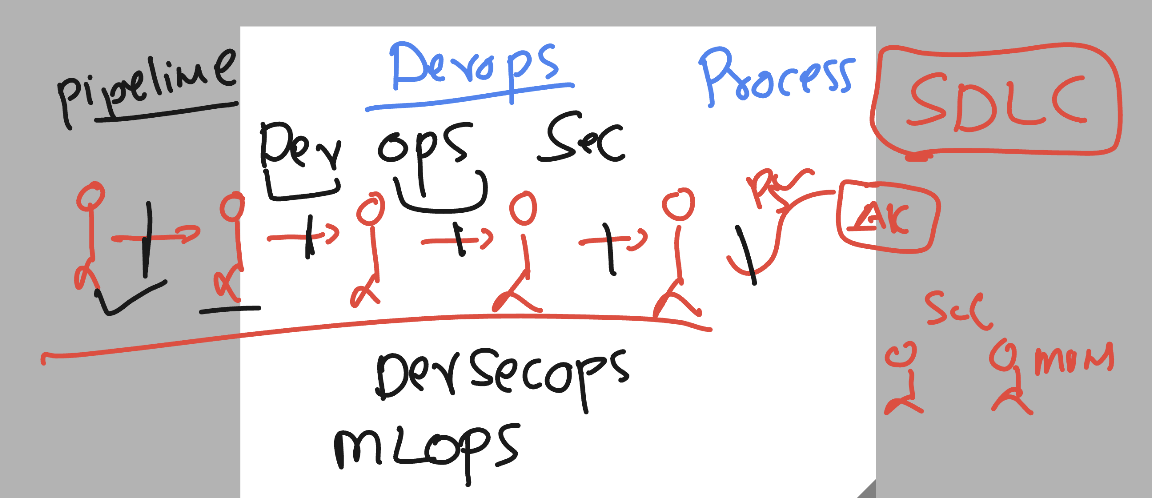 Pipeline Devops Process SDLC
Dev ops Sec
AK
Sec
mom
DevSecops
MLOPS